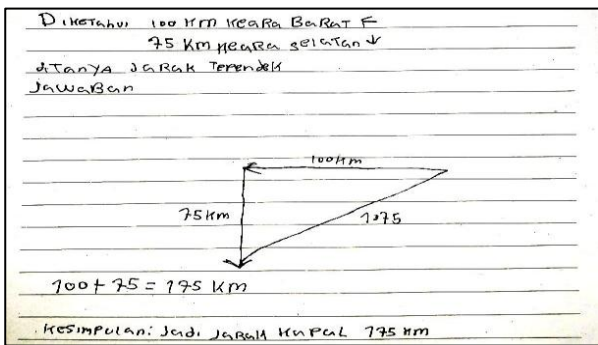 Diketahui 100 km keara Barat ←
75 km keara selatan ↓
diTanya Jarak Terendek
Jawaban
100 km
75 km
1075
100 + 75 = 175 km
Kesimpulan: Jadi Jarak kapal 175 km